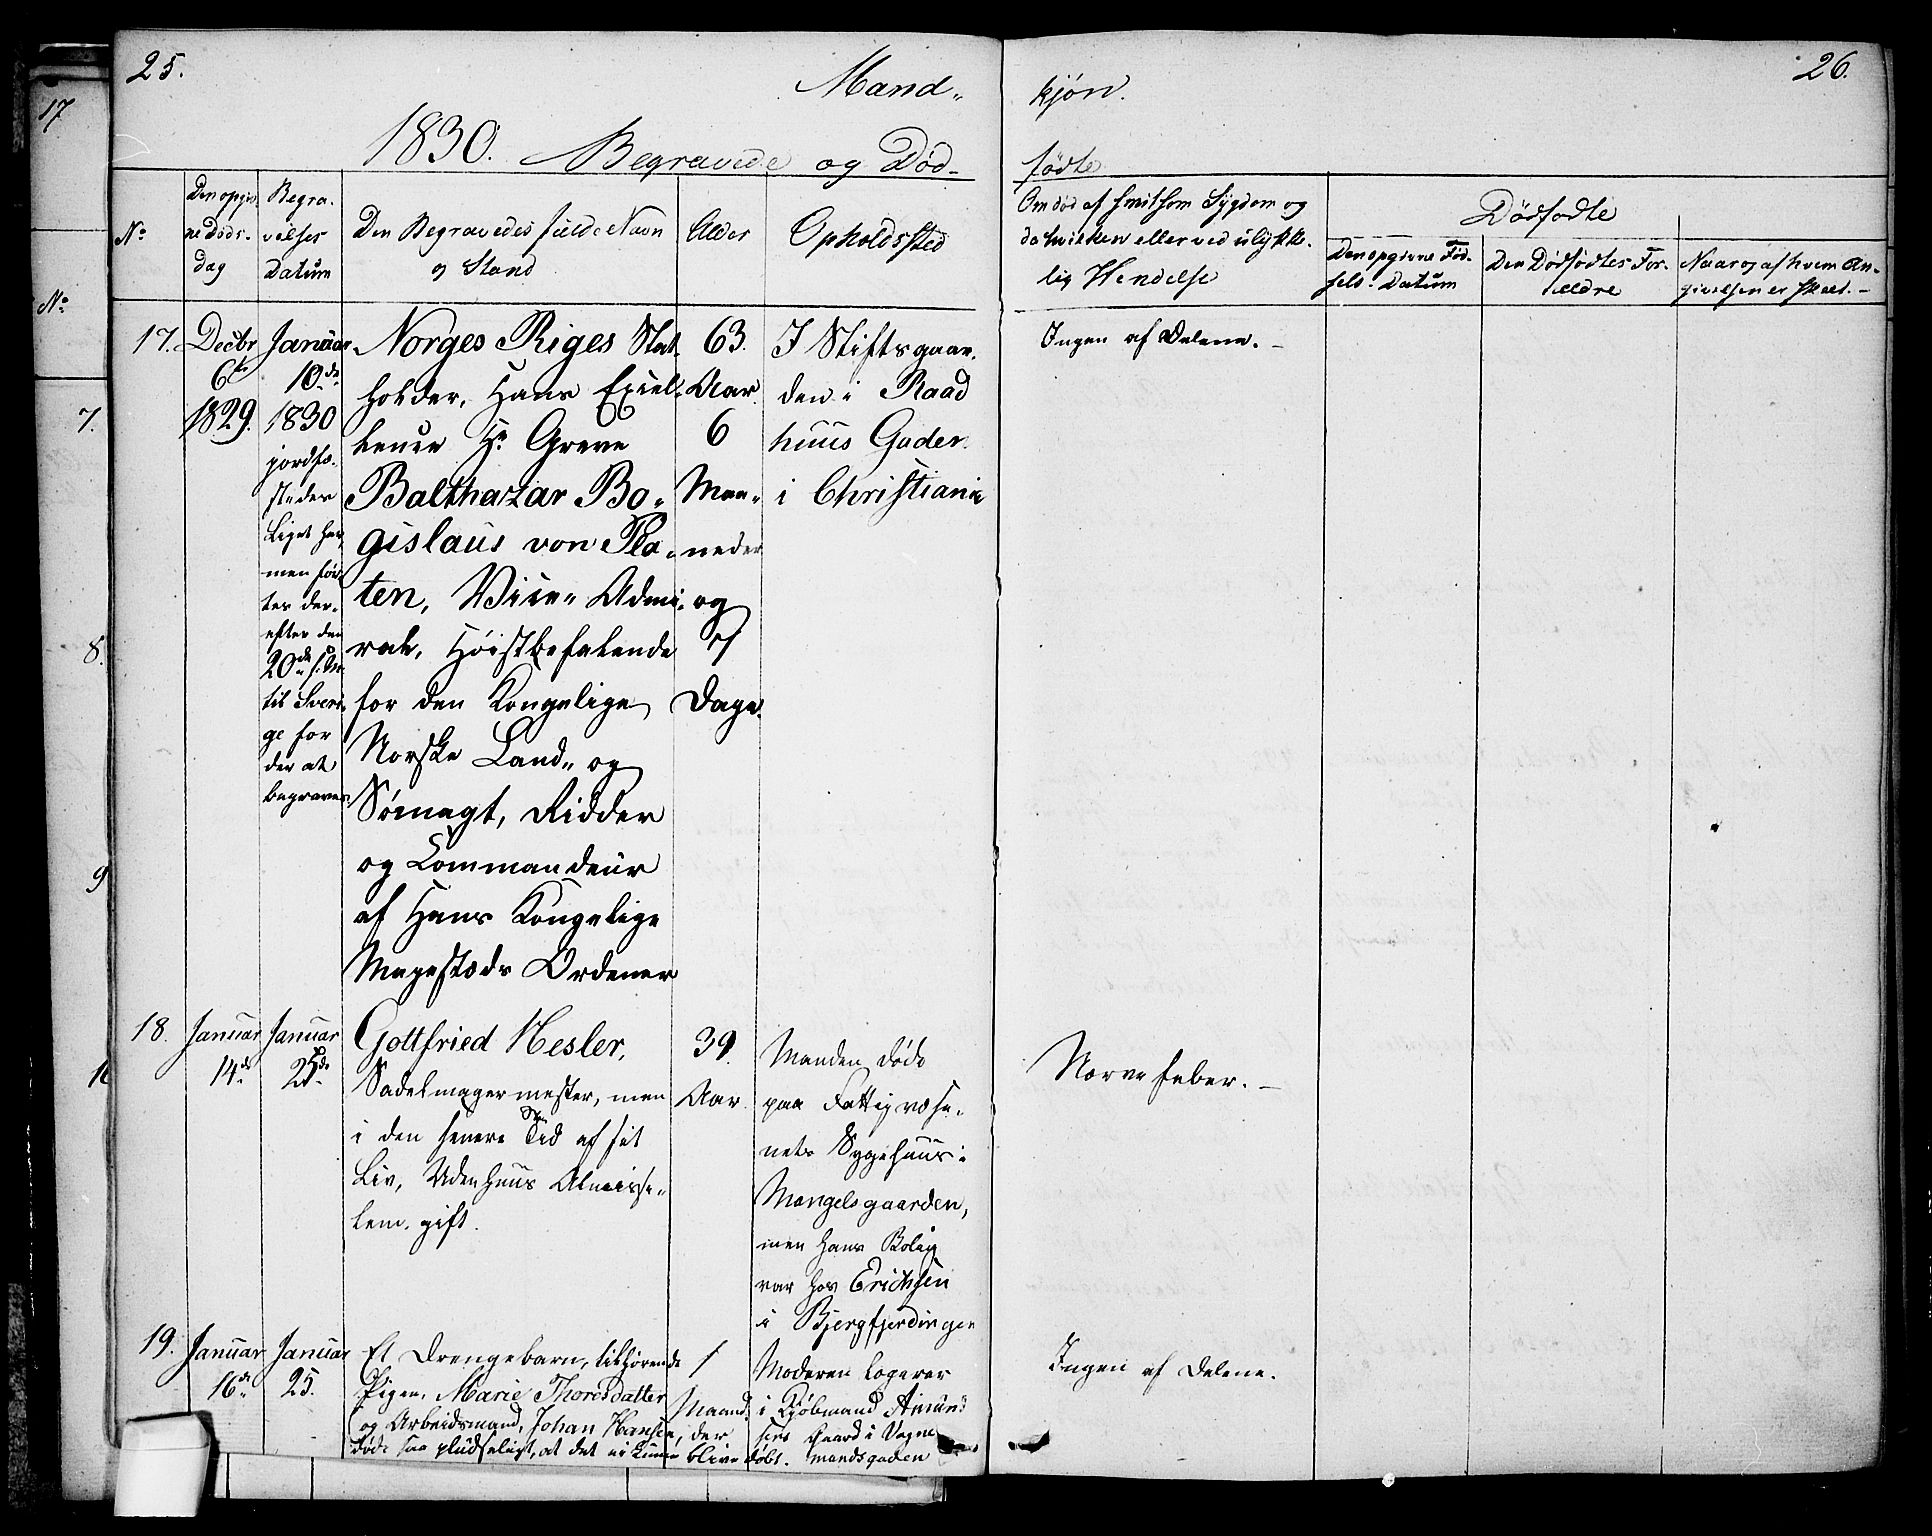 25.
Mand-
kjön.
26.
1830. Begravede og Död-
födte
No
Den opgiv-
ne Döds-
dag
Begra-
velses
Datum
Den Begravedes fulde Navn
og Stand
Alder
Opholdssted
Om död af smitsom Sygdom og
da hvilken eller ved ulykke-
lig Hendelse
Dödfödte
Den opgivne Föd-
sels-Datum
Den Dödfödtes For-
ældre
Naar og af hvem An-
givelsen er skeet.-
17.
Decbr
6te
1829.
Januar
10de
1830
jordfæ-
stedes
Liget her,
men för-
tes der-
efter den
20de s. M.
til Sveri-
ge for
der at
begraves.
Norges Riges Stat-
holder, Hans Excel-
lence Hr Greve
Balthazar Bo-
gislaus von Pla-
ten, Vice- Admi-
ral, Höistbefalende
for den Kongelige
Norske Land- og
Sömagt, Ridder
og Commandeur
af Hans Kongelige
Majestæds Ordener
63.
Aar
6
Maa-
neder
og
7
Dage.
I Stiftsgaar-
den i Raad
huus Gaden
i Christiania
Ingen af Delene. -
18.
Januar
14de
Januar
25de
Gottfried Nesler,
Sadelmagermester, men
i den senere Tid af sit
Liv, Udenhuus Almisse-
lem. gift.
39.
Aar
Manden döde
paa Fattigvæse-
nets Sygehuus i
Mangelsgaarden,
men hans Bolig
var hos Erichsen
i Bjergfjerdingen
Nerve feber. -
19.
Januar
16de
Januar
25.
Et Drengebarn, tilhörende
Pigen, Marie Thoresdatter
og Arbeidsmand, Johan Hansen, der
döde saa pludseligt, at det ei kunne blive döbt.
1
Maaned
Moderen logerer
i Kjöbmand Amund
sens Gaard i Vogne
mandsgaden
Ingen af Delene.
17
No
7.
8.
9